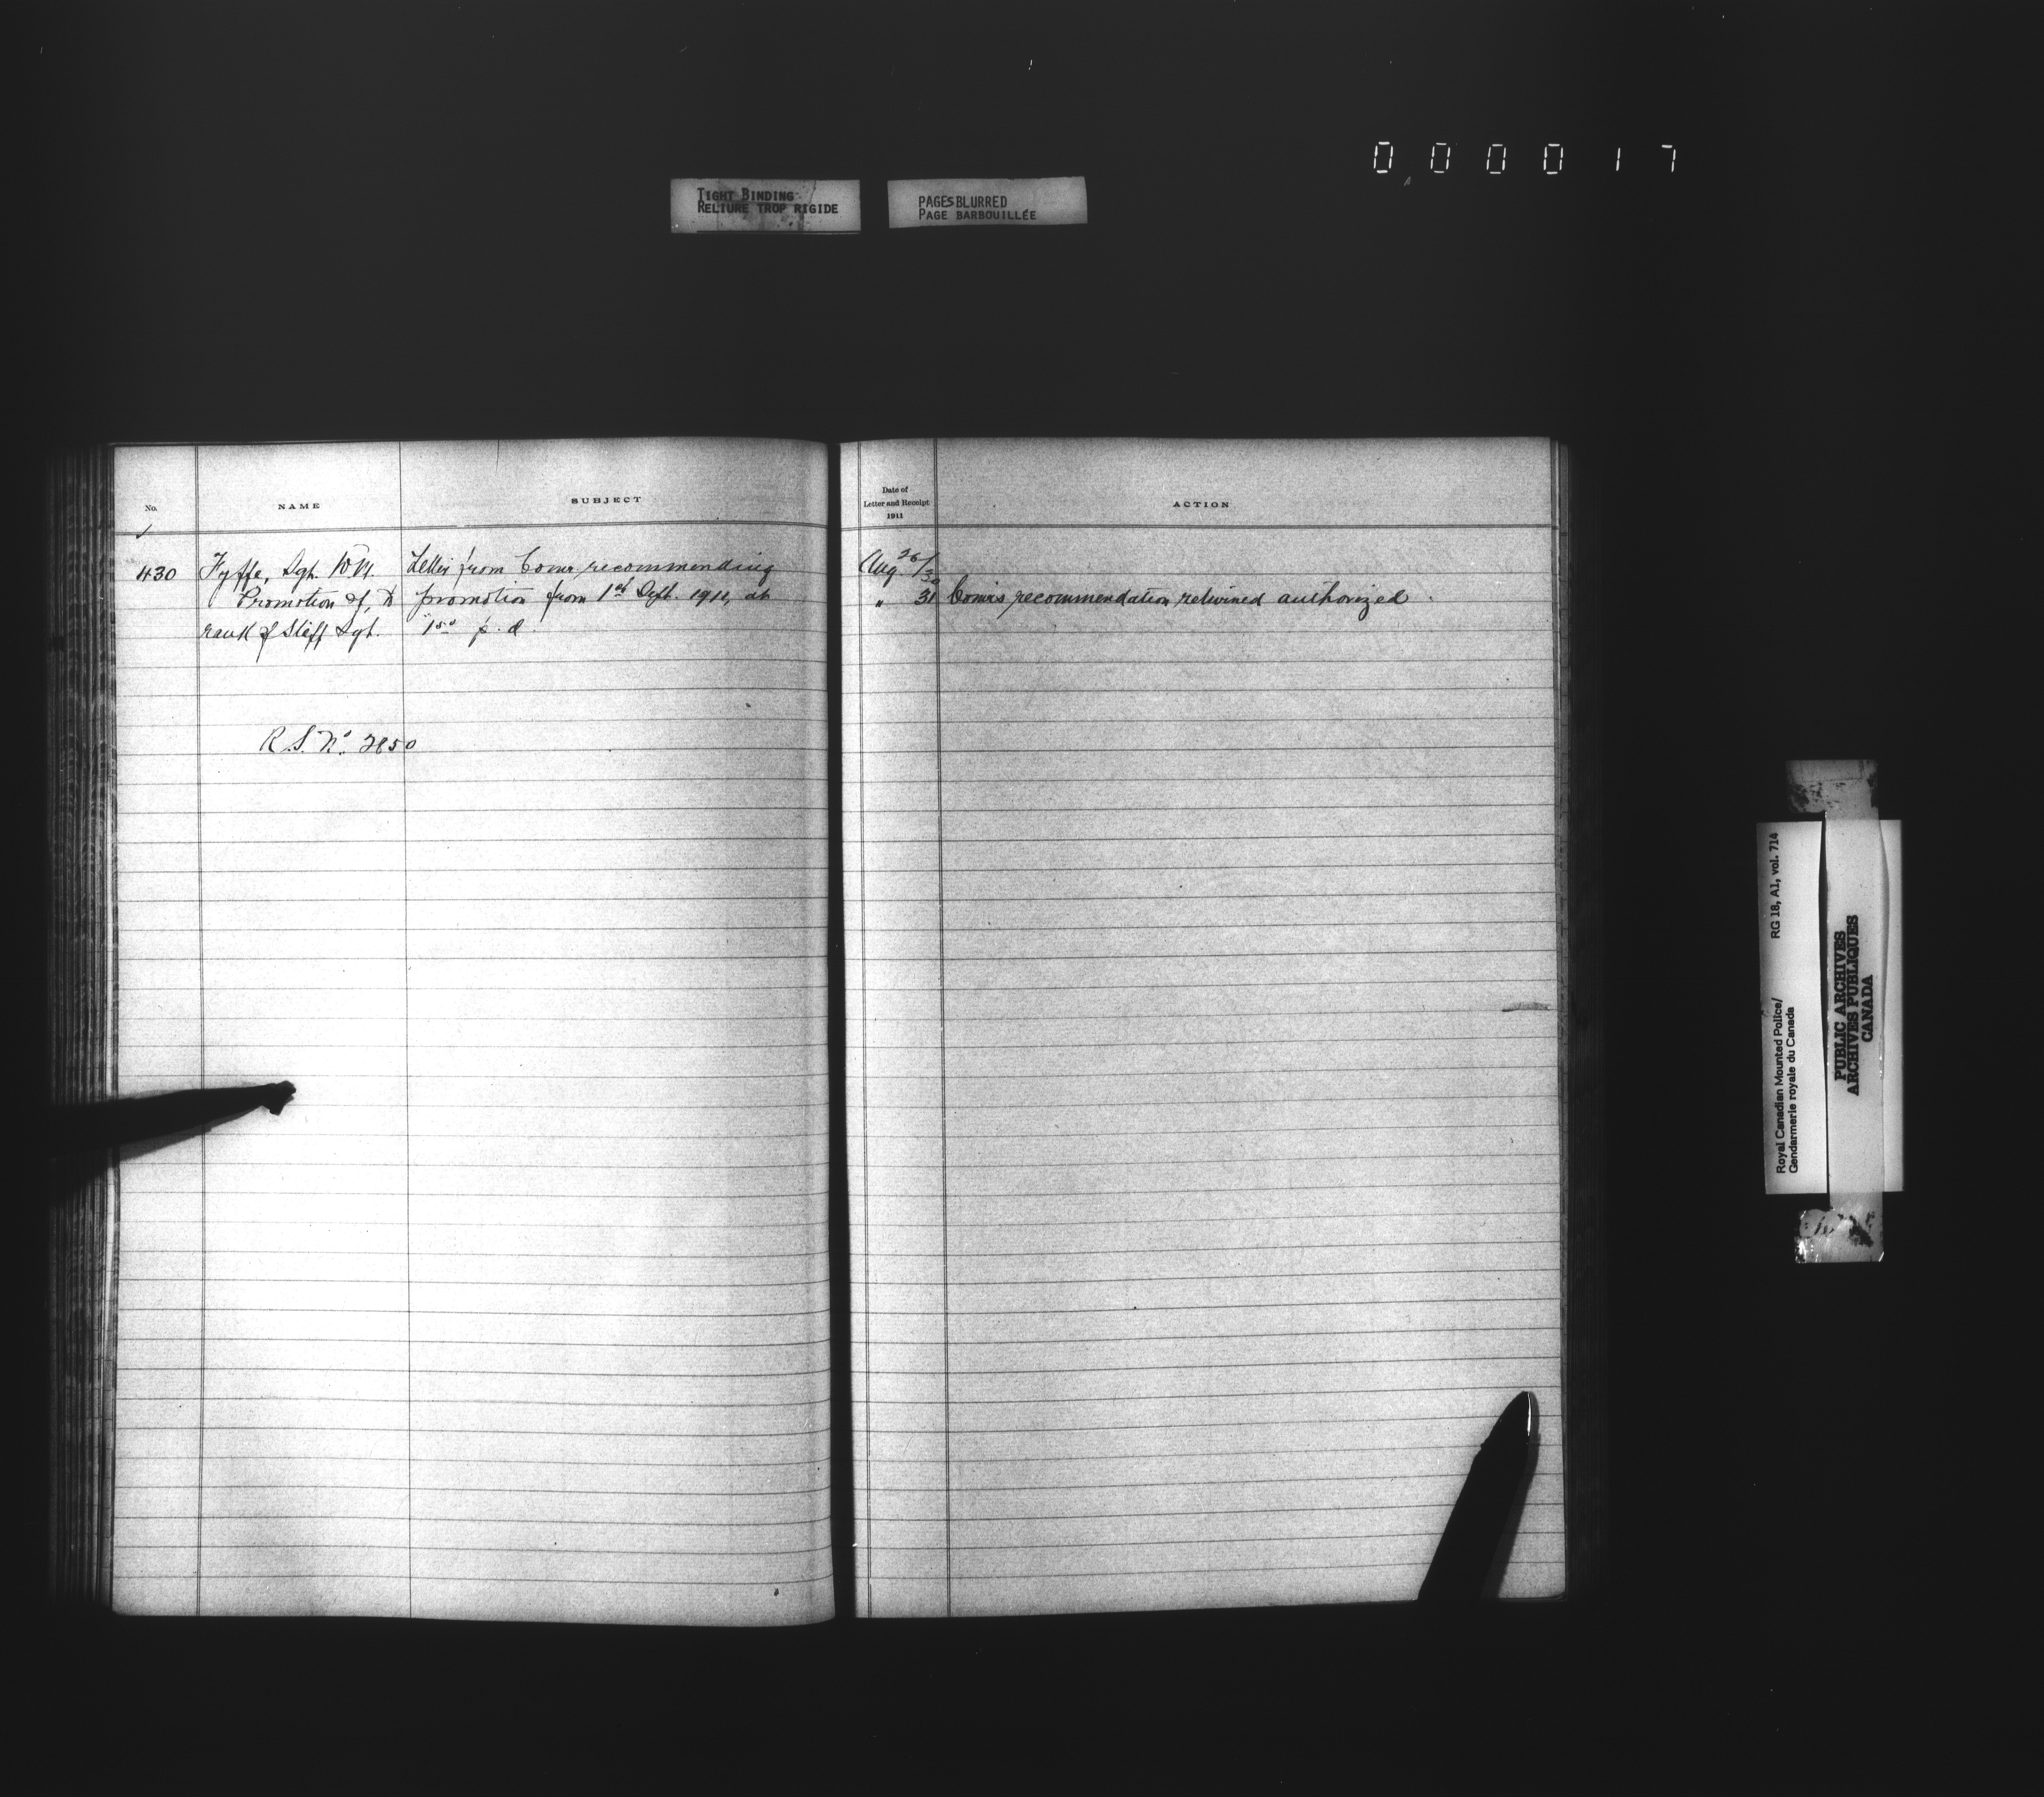 000017
TIGHT BINDING
RELIURE TROP RIGIDE
PAGES BLURRED
PAGE BARBOUILLÉE
No.
NAME
SUBJECT
Date of
Letter and Receipt
1911
ACTION
430
Fyffe, Sgt. W.M.
Promotion of, to
rank of Staff Sgt.
Letter from Comr recommending
promotion from 1st Sept. 1911, at
1 50 p. d.
R.S. No. 2850
Aug. 26/30
" 31 Comr's recommendation returned authorized.
Royal Canadian Mounted Police/ RG 18, A1, vol. 714
Gendarmerie royale du Canada
PUBLIC ARCHIVES
ARCHIVES PUBLIQUES
CANADA